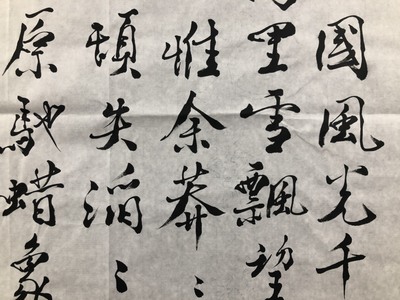 國風光千
里雪飄望
惟余莽〻
頓失滔〻
原馳蜡象